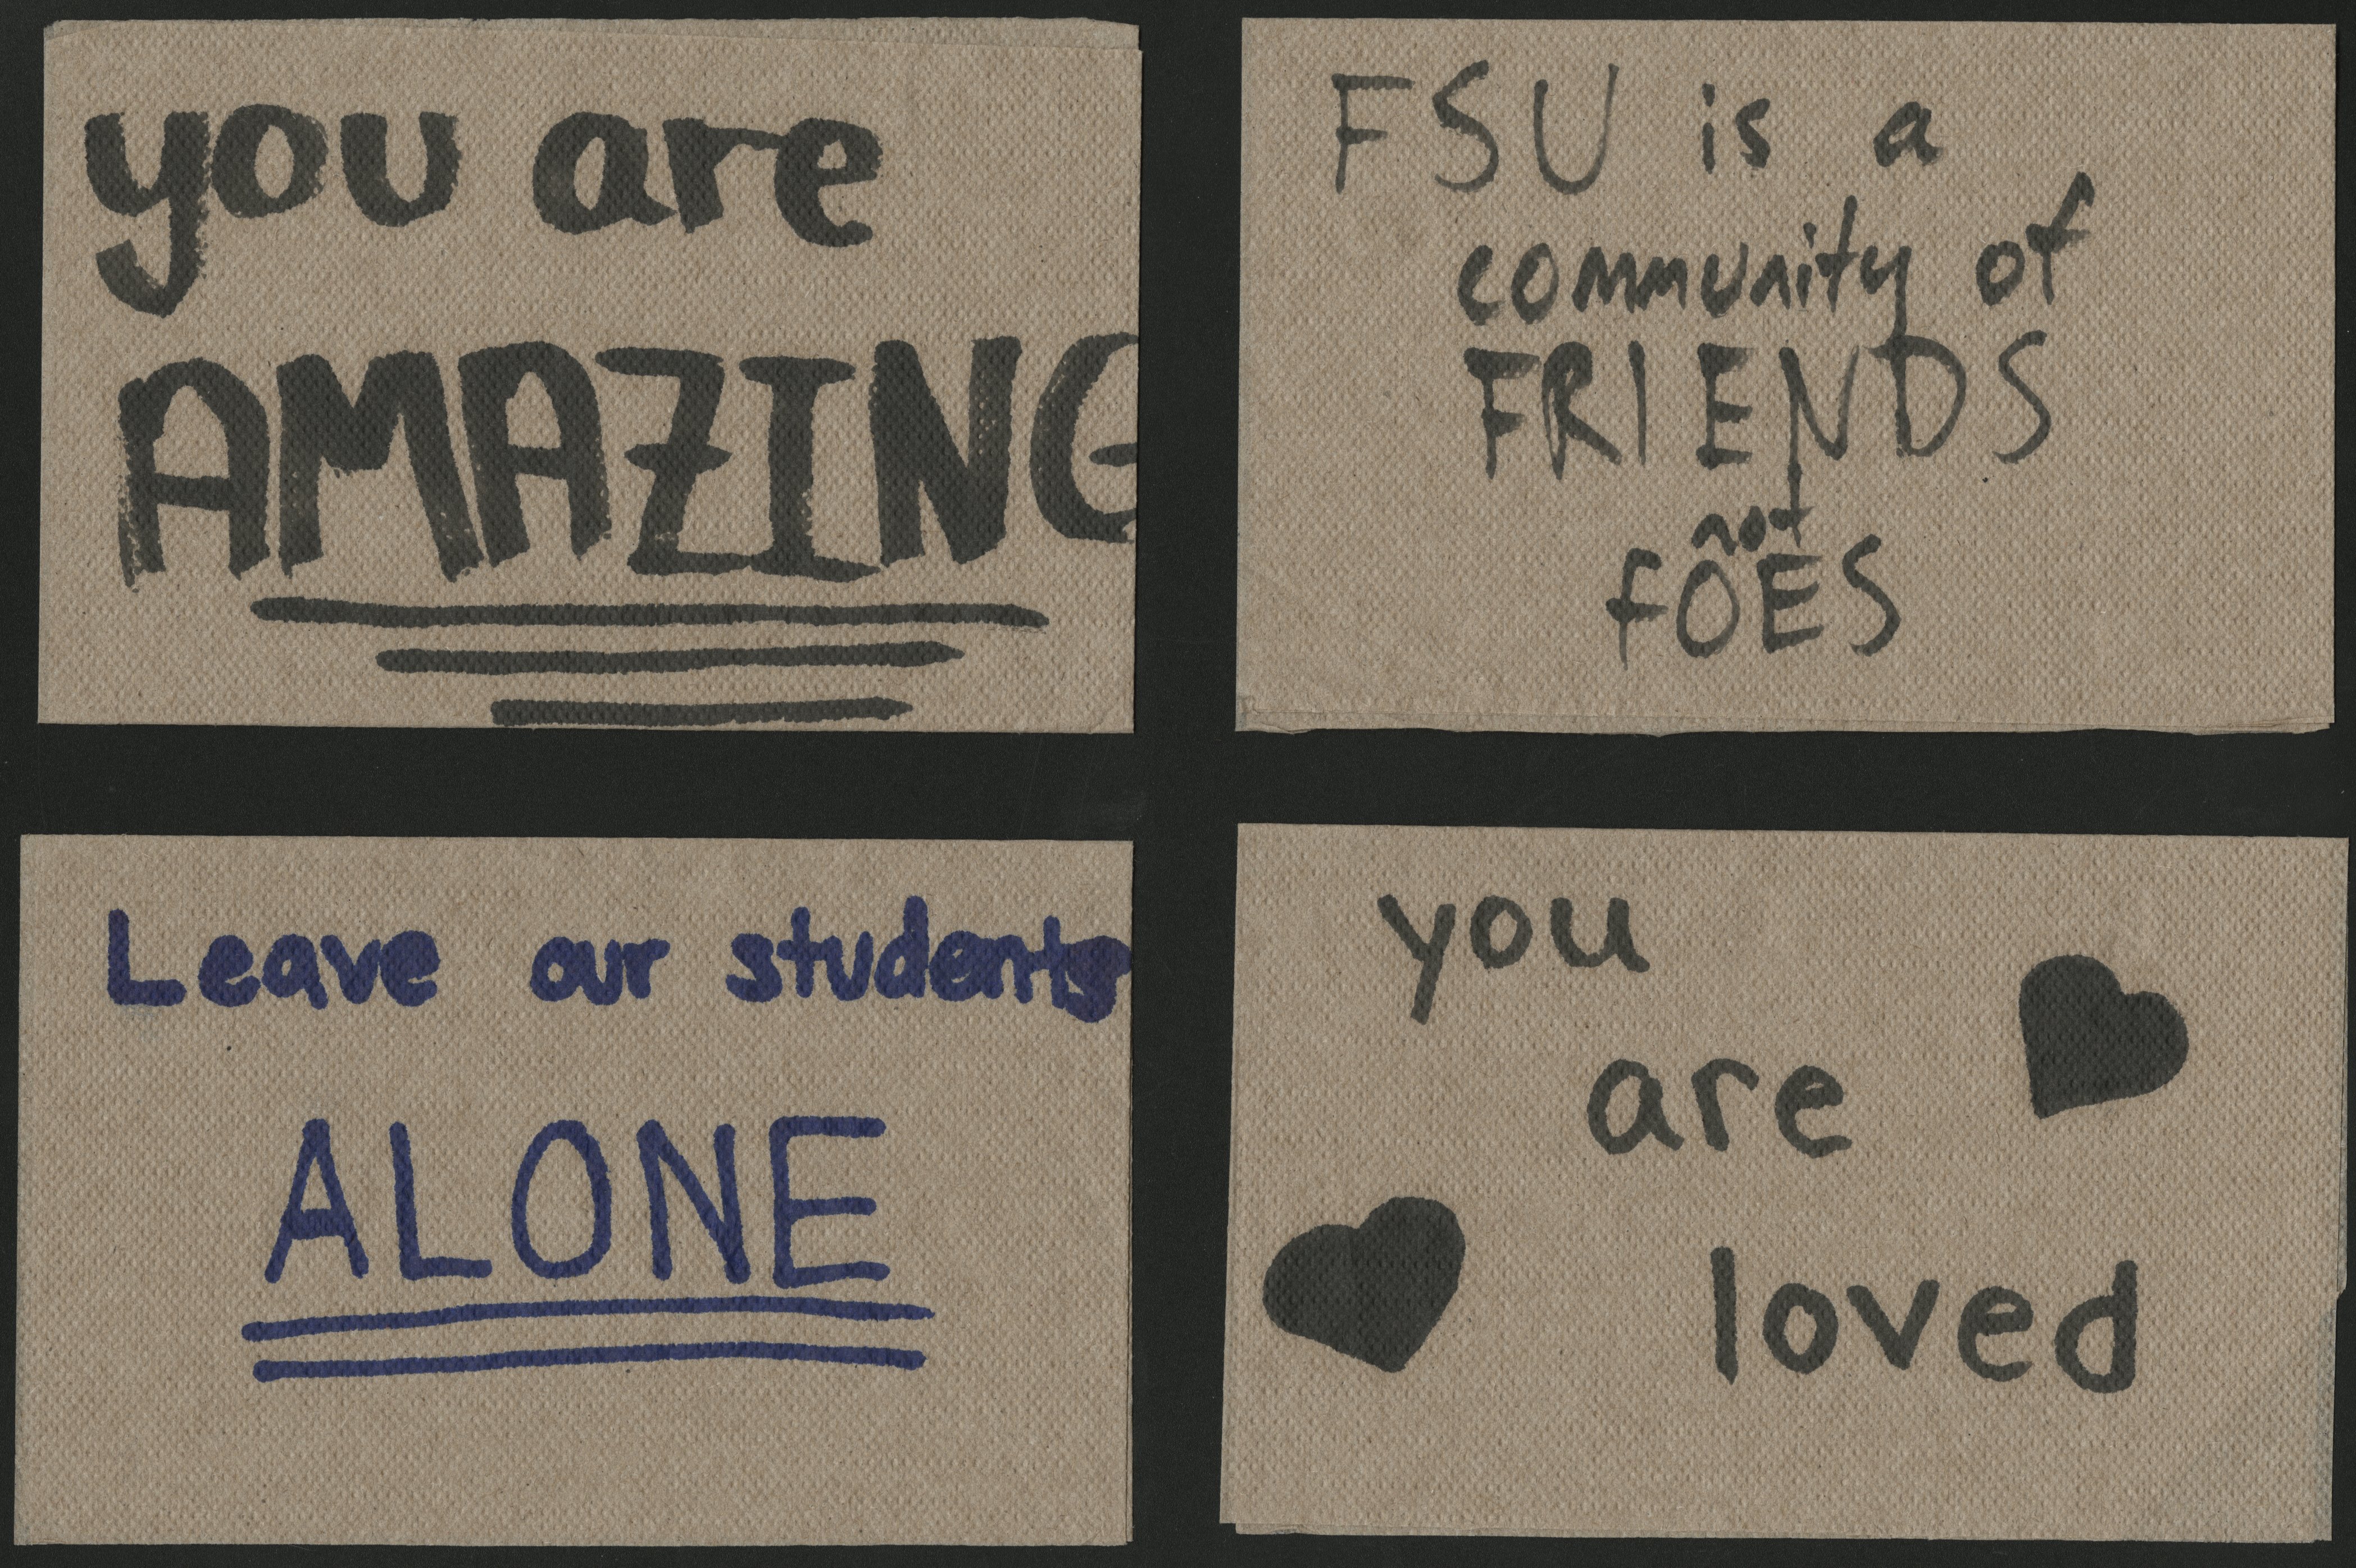 you are
AMAZING
FSU is a
community of
FRIENDS
not
fOES
Leave our students
ALONE
you
are
loved